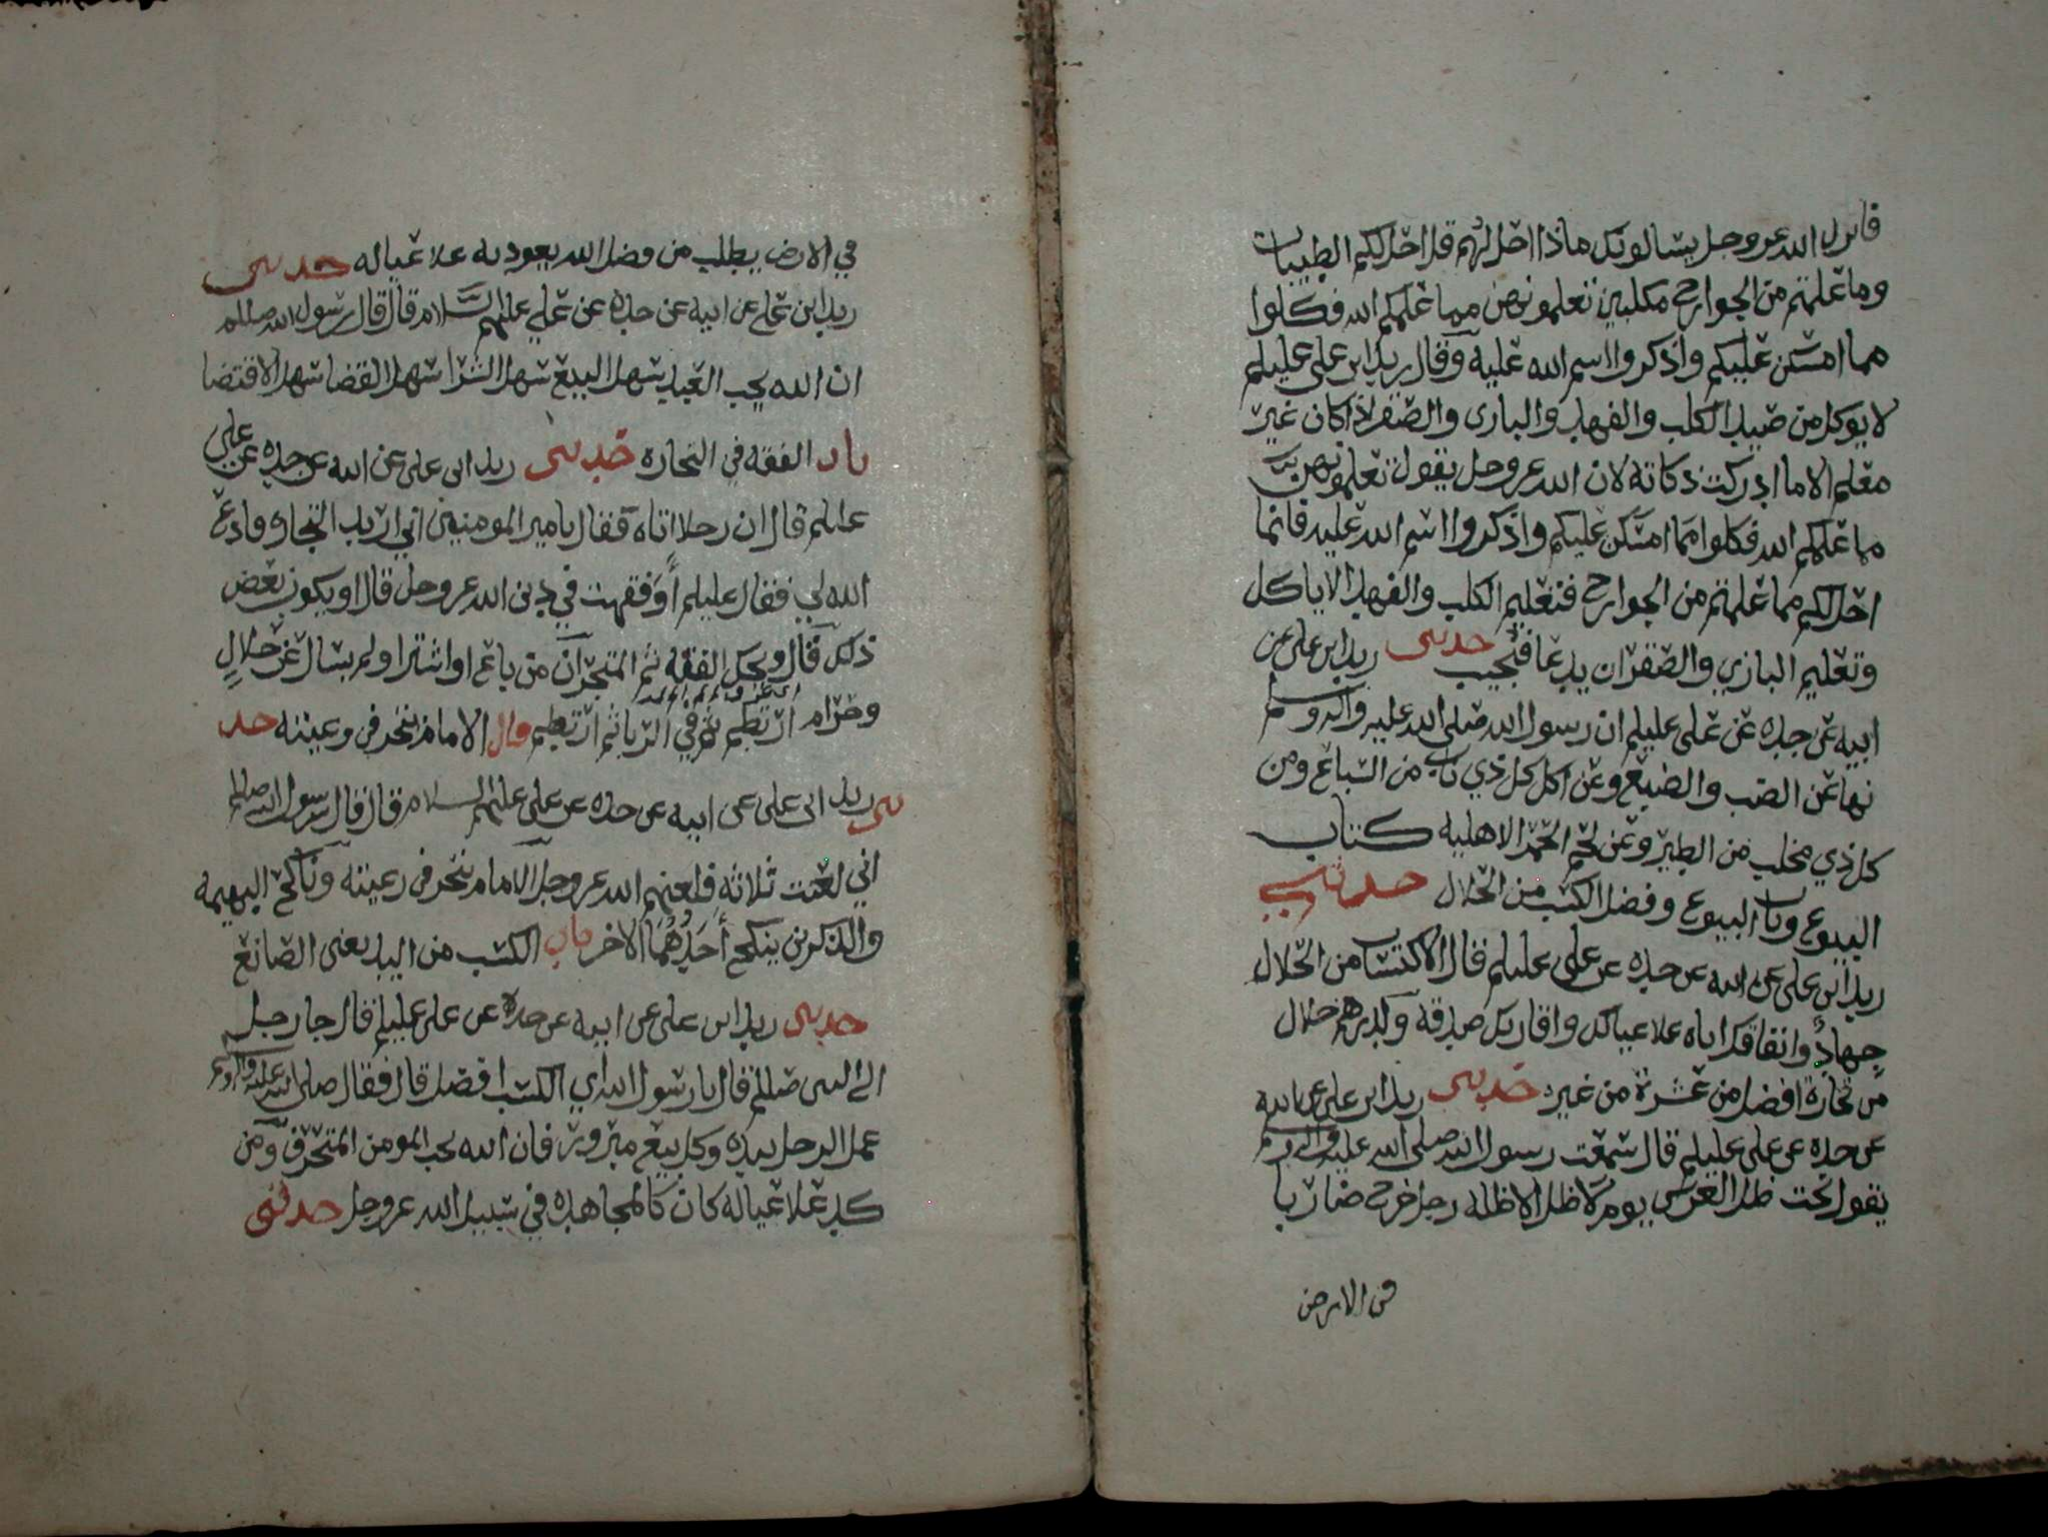 فانزل الله عز وجل يسالونك ماذا احل لهم قل احل لكم الطيبات
وما علمتم من الجوارح مكلبين تعلمونهن مما علمكم الله فكلوا
مما امسكن عليكم واذكروا اسم الله عليه وقال زيد ابن علي عليلم
لا يوكل من صيد الكلب والفهد والبازي والصقر اذا كان غير
معلم الا ما ادركت ذكاته لان الله عز وجل يقول تعلمونهن
مما علمكم الله فكلوا مما امسكن عليكم واذكروا اسم الله عليه فانما
احل لكم مما علمتم من الجوارح فتعليم الكلب والفهد الا ياكل
وتعليم البازي والصقر ان يدعا فيجيب حدثني زيد ابن علي عن
ابيه عن جده عن علي عليلم ان رسول الله صلى الله عليه واله وسلم
نها عن الضب والضبع وعن اكل كل ذي ناب من السباع ومن
كل ذي مخلب من الطير وعن لحم الحمر الاهليه كتاب
البيوع وباب البيوع وفضل الكسب من الحلال حدثني
زيد ابن علي عن ابيه عن جده عن علي عليلم قال الاكتساب من الحلال
جهاد وانفاقك اياه علا عيالك واقاربك صدقه ولدرهم حلال
من تجارة افضل من عشرة من غيره حدثني زيد ابن علي عن ابيه
عن جده عن علي عليلم قال سمعت رسول الله صلى الله عليه واله وسلم
يقول تحت ظل العرش يوم لا ظل الا ظله رجل خرج ضاربا
في الارض
في الارض يطلب من فضل الله يعود به علا عياله حدثني
زيد ابن علي عن ابيه عن جده عن علي عليهم السلام قال قال رسول الله صللم
ان الله يحب العبد سهل البيع سهل الشرا سهل القضا سهل الاقتضا
باب الفقه في التجاره حدثني زيد ابن علي عن ابيه عن جده عن علي
عليلم قال ان رجلا اتاه فقال يا مير المومنين اني اريد التجاره فادع
الله لي فقال عليلم أوفقهت في دين الله عز وجل قال او يكون بعض
ذلك قال ويحك الفقه ثم المتجر ان من باع او اشترا ولم يسال عن حلال
وحرام ارتطم في الربا ثم ارتطم وقال الامام يتجر في رعيته حد
ثني زيد ابن علي عن ابيه عن جده عن علي عليهم السلام قال قال رسول الله صللم
اني لعنت ثلاثه فلعنهم الله عز وجل الامام يتجر في رعيته وناكح البهيمه
والذكرين ينكح أحدهما الاخر باب الكسب من اليد يعني الصانع
حدثني زيد ابن علي عن ابيه عن جده عن علي عليلم قال جا رجل
الى النبي صللم فقال يا رسول الله اي الكسب افضل قال فقال صلى الله عليه واله وسلم
عمل الرجل بيده وكل بيع مبرور فان الله يحب المومن المتحرف ومن
كد علا عياله كان كالمجاهد في سبيل الله عز وجل حدثني